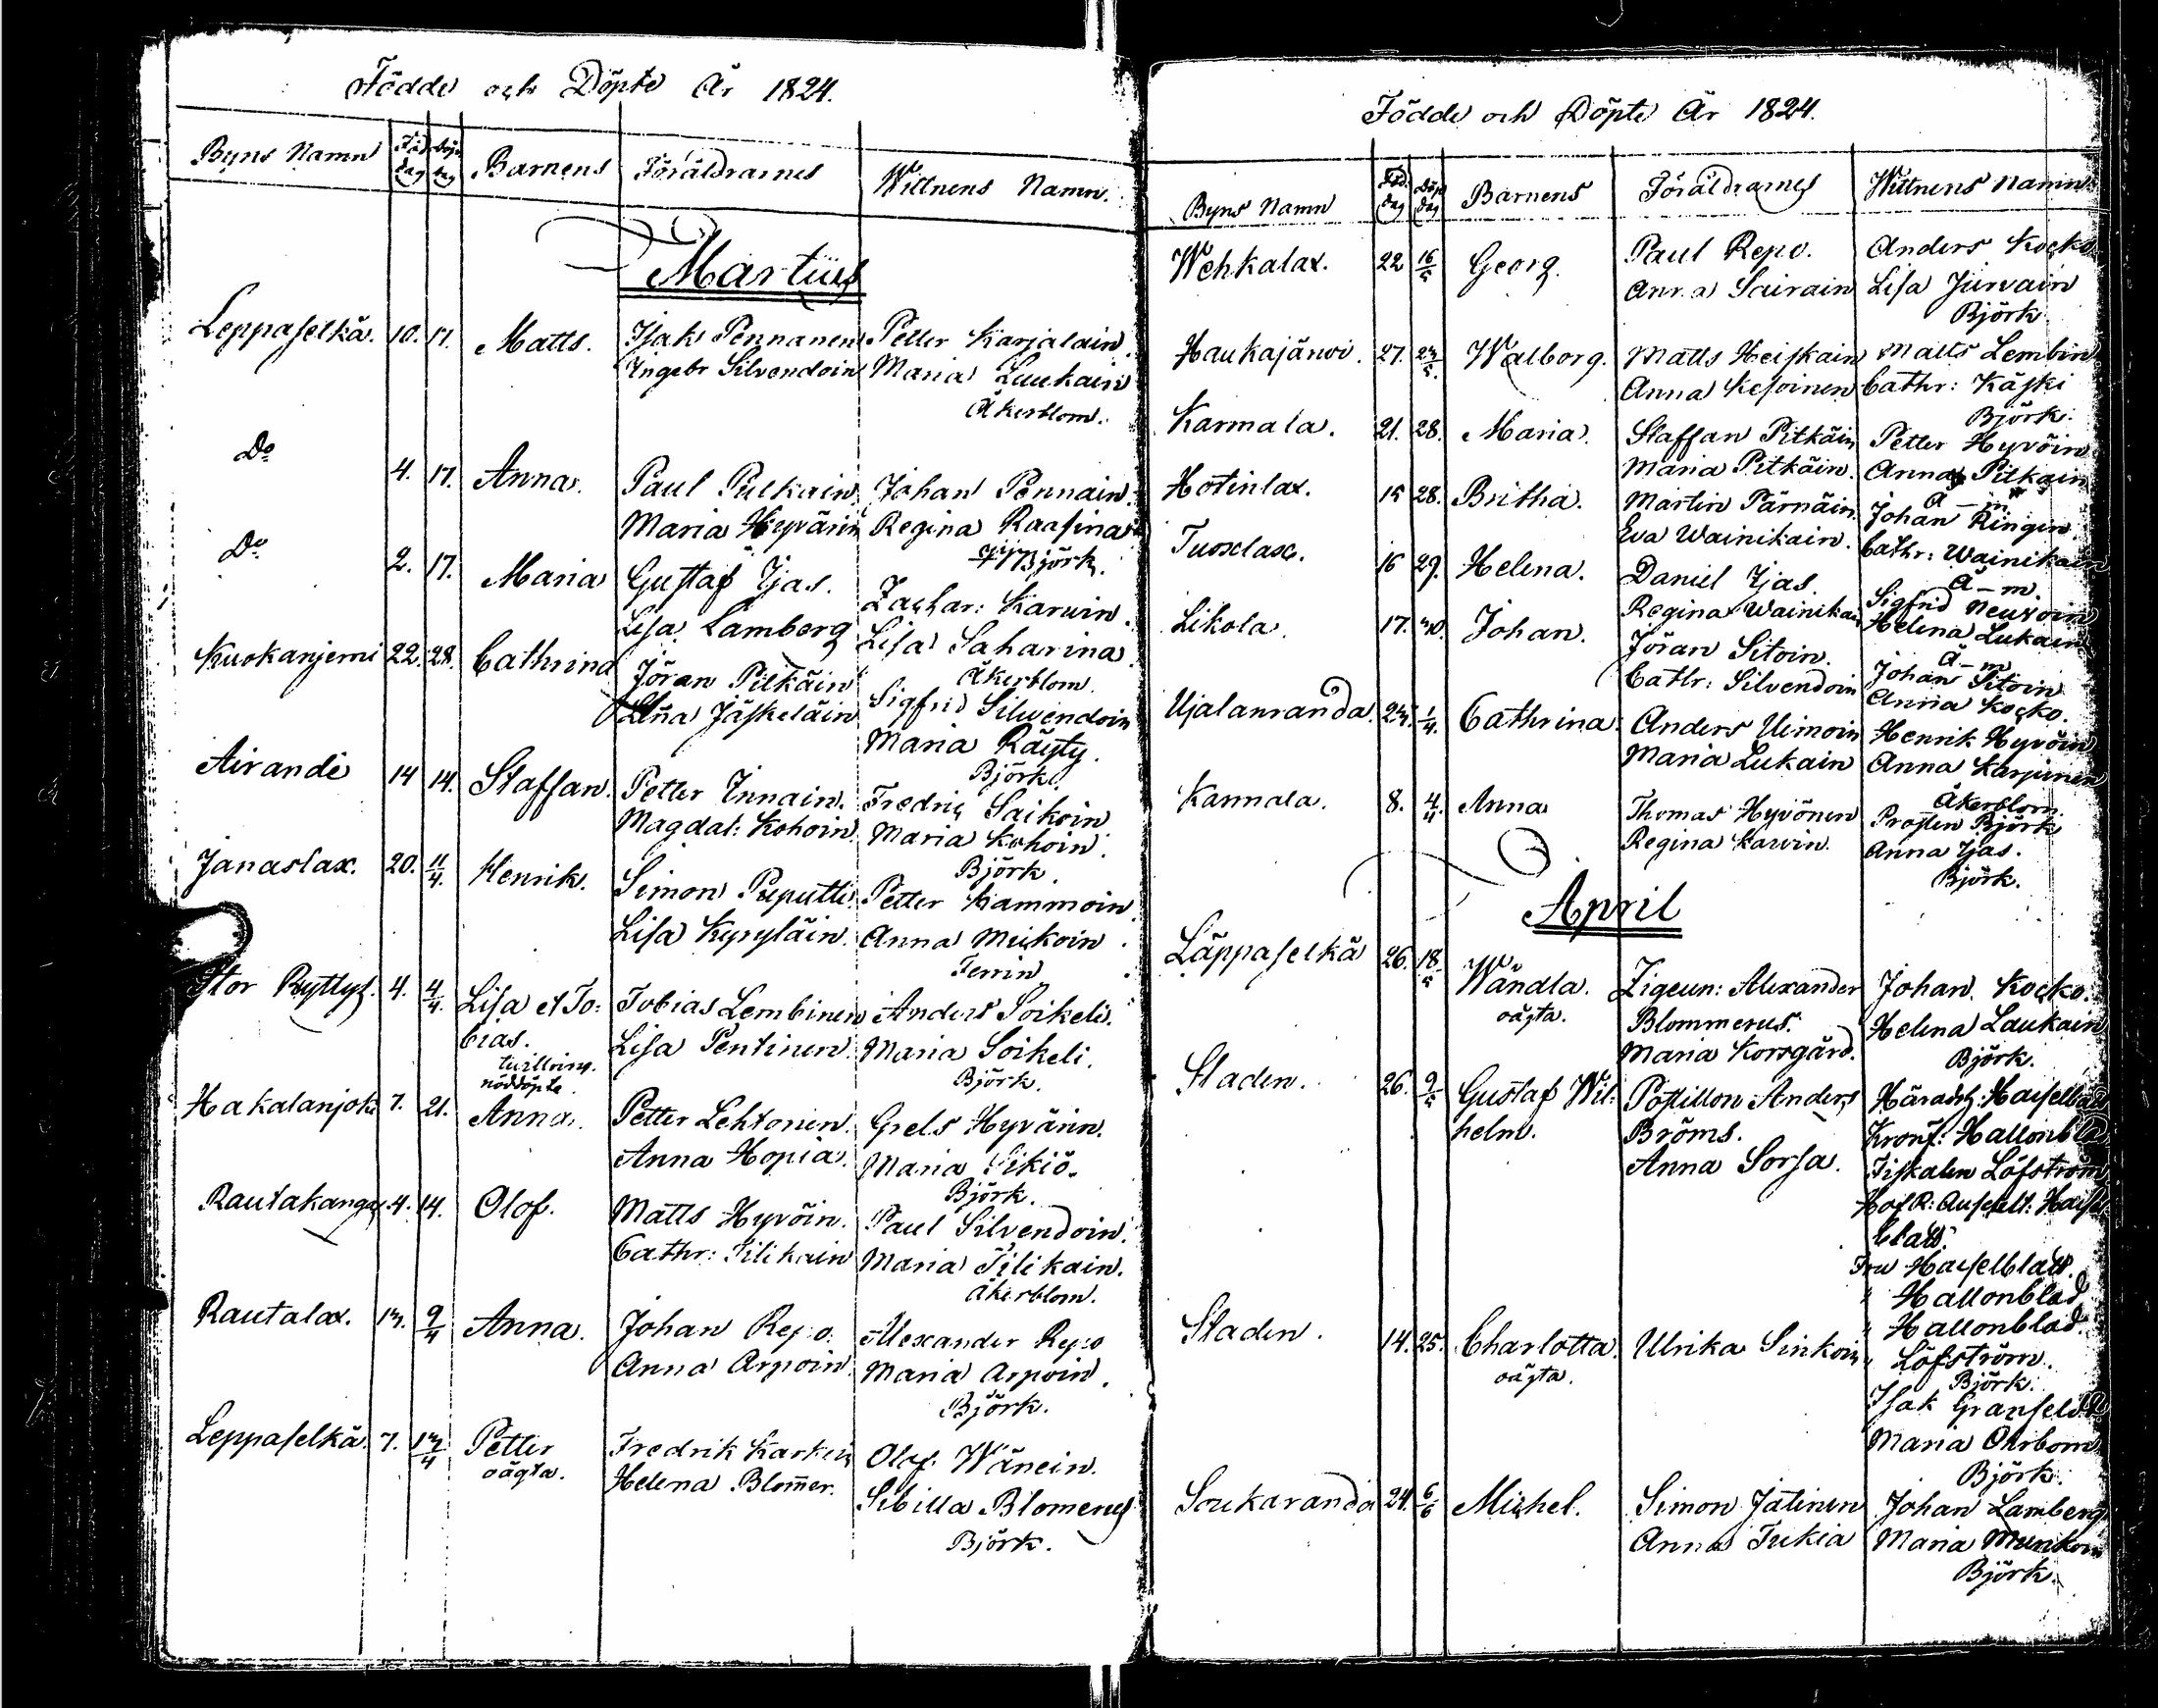 Födde och Döpte År 1824.
Byns Namn Föd dag Döp dag Barnens Föräldrarnes Wittnens Namn.
Martius
Leppaselkä. 10. 17. Matts. Isak Pennanen Petter Karjalain
Ingebr Silvendoin Maria Luukain
Åkerblom.
Do 4. 17. Anna. Paul Pulkain Johan Pennain.
Maria Hyvärin Regina Raasina
Björk.
Do 2. 17. Maria Gustaf Ijas. Zachar: Karvin.
Lisa Lamberg Lisa Saharina
Åkerblom.
Kuokanjemi 22. 28. Cathrina Jöran Pitkäin Sigfrid Silvendoin
Lena Jäskeläin Maria Räyty.
Björk.
Airandè 14 14. Staffan. Petter Innain. Fredric Saikoin
Magdal: Kohoin. Maria Kohoin.
Björk.
Janaslax. 20. 11/4. Henrik. Simon Puputti Petter Kammoin.
Lisa Kyryläin. Anna Mikoin.
Ferrin
Stor Ryttys. 4. 4/4. Lisa et To- Tobias Lembinen Anders Soikeli.
bias. Lisa Pentinen. Maria Soikeli.
tvilling. Björk.
nöddöpte.
Hakalanjoki 7. 21. Anna. Petter Lehtonen. Grels Hyvärin.
Anna Hopia. Maria Sikiö.
Björk.
Rautakangas. 4. 14. Olof. Matts Hyvöin. Paul Silvendoin.
Cathr: Tilikain Maria Tilikain.
Åkerblom.
Rautalax. 13. 9/4 Anna. Johan Repo. Alexander Repo
Anna Arpoin. Maria Arpoin.
Björk.
Leppaselkä. 7. 13/4 Petter Fredrik Karkin Olof Wänein.
oägta. Helena Blom̄er. Sibilla Blomerus
Björk.
Födde och Döpte År 1824.
Byns Namn Föd. dag Döp dag Barnens Föräldrarnes Wittnens Namn.
Wehkalax. 22 16/5 Georg. Paul Repo. Anders Kocko
Anna Sairain Lisa Jurvain
Björk.
Haukajärwi. 27. 23/5. Walborg. Matts Heiskain Matts Lembin
Anna Kesoinen Cathr: Käski
Björk.
Karmala. 21. 28. Maria. Staffan Pitkäin Petter Hyvöin
Maria Pitkäin. Anna Pitkain
Å–m
Hotinlax. 15 28. Britha. Martin Pärnäin. Johan Ringin.
Eva Wainikain. Cathr: Wainikain
Å–m.
Tuoxlax. 16 29. Helena. Daniel Ijas. Sigfrid Neuvoin
Regina Wainikain Helena Lukain
Å–m
Likola. 17. 30. Johan. Jöran Sitoin. Johan Sitoin
Cathr: Silvendoin Anna Kocko.
Ujalanranda. 23. 1/4. Cathrina. Anders Uimoin Henrik Hyvöin
Maria Lukain Anna Karpinen
Åkerblom.
Karmala. 8. 4/4 Anna Thomas Hyvönen Prosten Björk
Regina Karvin. Anna Ijas.
Björk.
April
Läppaselkä 26. 18/5 Wändla. Zigeun: Alexander Johan Kocko.
oägta. Blommerus. Helena Laukain
Maria Korsgård. Björk.
Staden. 26. 9/5 Gustaf Wil- Postillon Anders Häradsh: Haiselblatt
helm. Bröms. Kronf: Hallonblad
Anna Sorsa. Fiskalen Löfström
Hof R: Auskult: Haisel
blatt.
Fru Haiselblatt.
" Hallonblad
" Hallonblad.
" Löfström.
Björk.
Staden. 14. 25. Charlotta. Ulrika Sinkoin Isak Granfeldt
oägta. Maria Ohrbom
Björk.
Soukaranda 24. 6/6 Michel. Simon Jätinen Johan Lamberg
Anna Tukia Maria Munkoin
Björk.